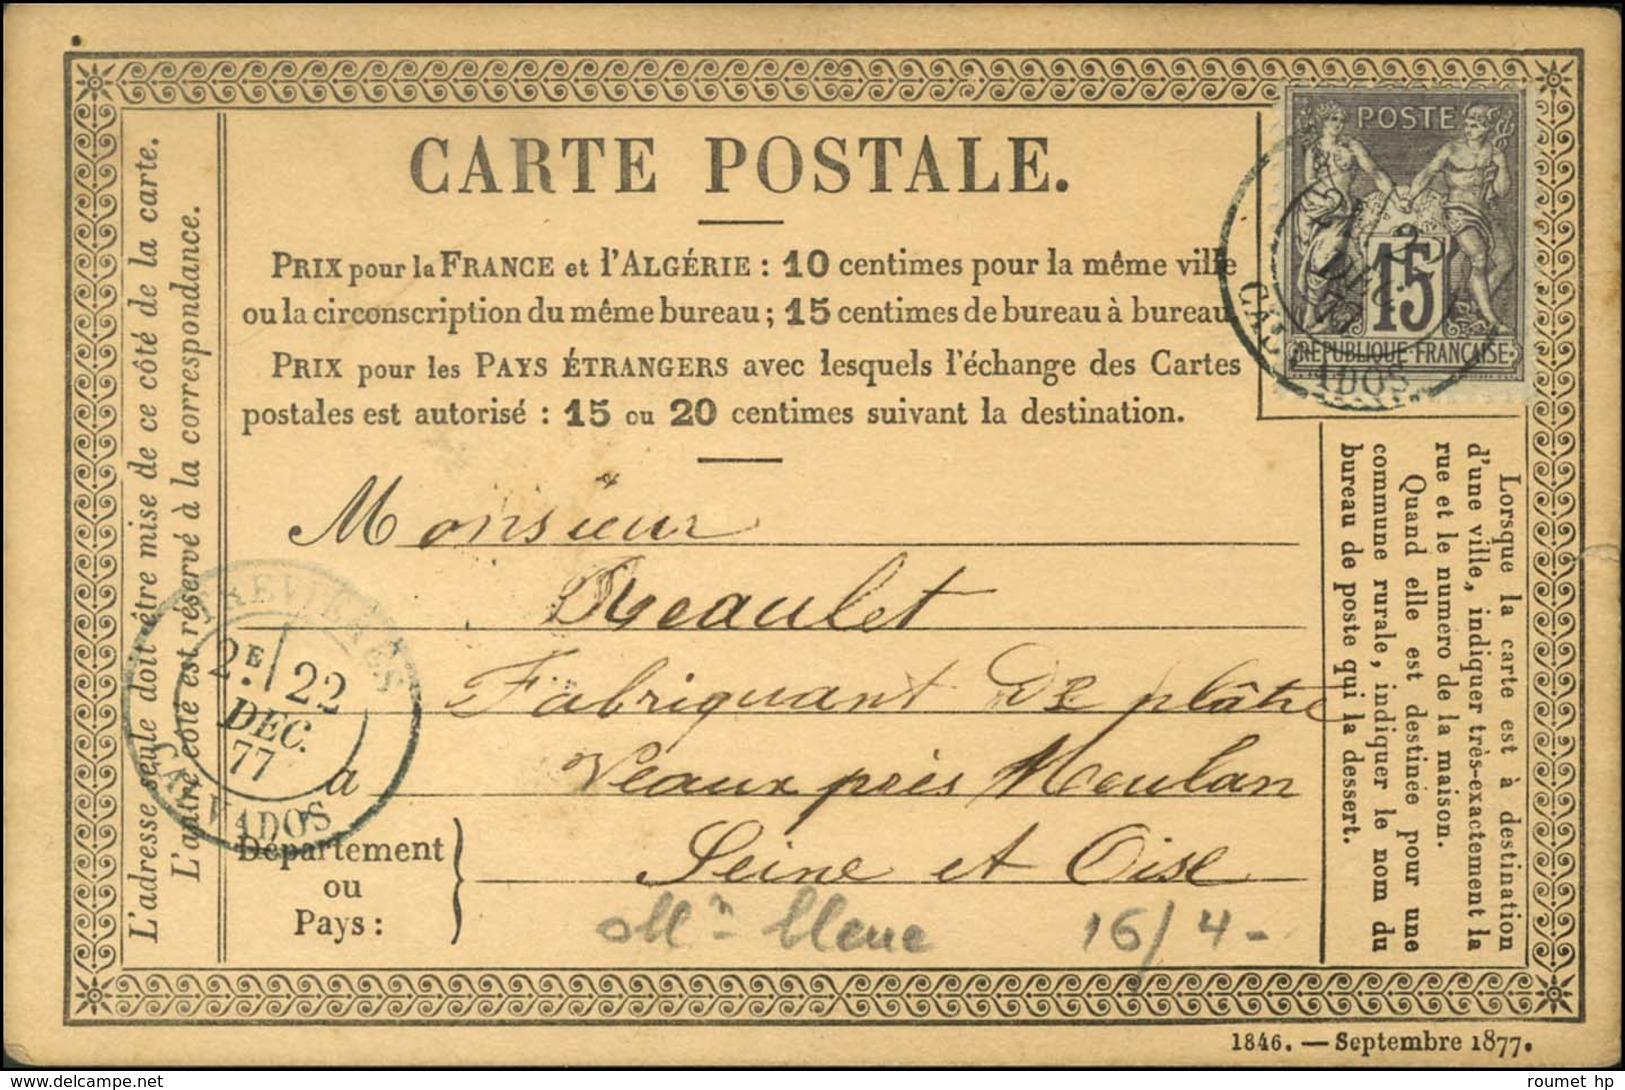 CARTE POSTALE.
POSTE
15
RÉPUBLIQUE FRANÇAISE
DEC.
77
CALVADOS
PRIX pour la FRANCE et l'ALGÉRIE : 10 centimes pour la même ville
ou la circonscription du même bureau ; 15 centimes de bureau à bureau
PRIX pour les PAYS ÉTRANGERS avec lesquels l'échange des Cartes
postales est autorisé : 15 ou 20 centimes suivant la destination.
L'adresse seule doit être mise de ce côté de la carte.
L'autre côté est réservé à la correspondance.
Monsieur
Fabriquant De plâtre
à Veaux près Meulan
Département
ou
Pays :
Seine et Oise
2E 22
DEC.
77
CALVADOS
Lorsque la carte est à destination
d'une ville, indiquer très-exactement la
rue et le numéro de la maison.
Quand elle est destinée pour une
commune rurale, indiquer le nom du
bureau de poste qui la dessert.
16/4-
1846. — Septembre 1877.
delcampe.net
roumet hp